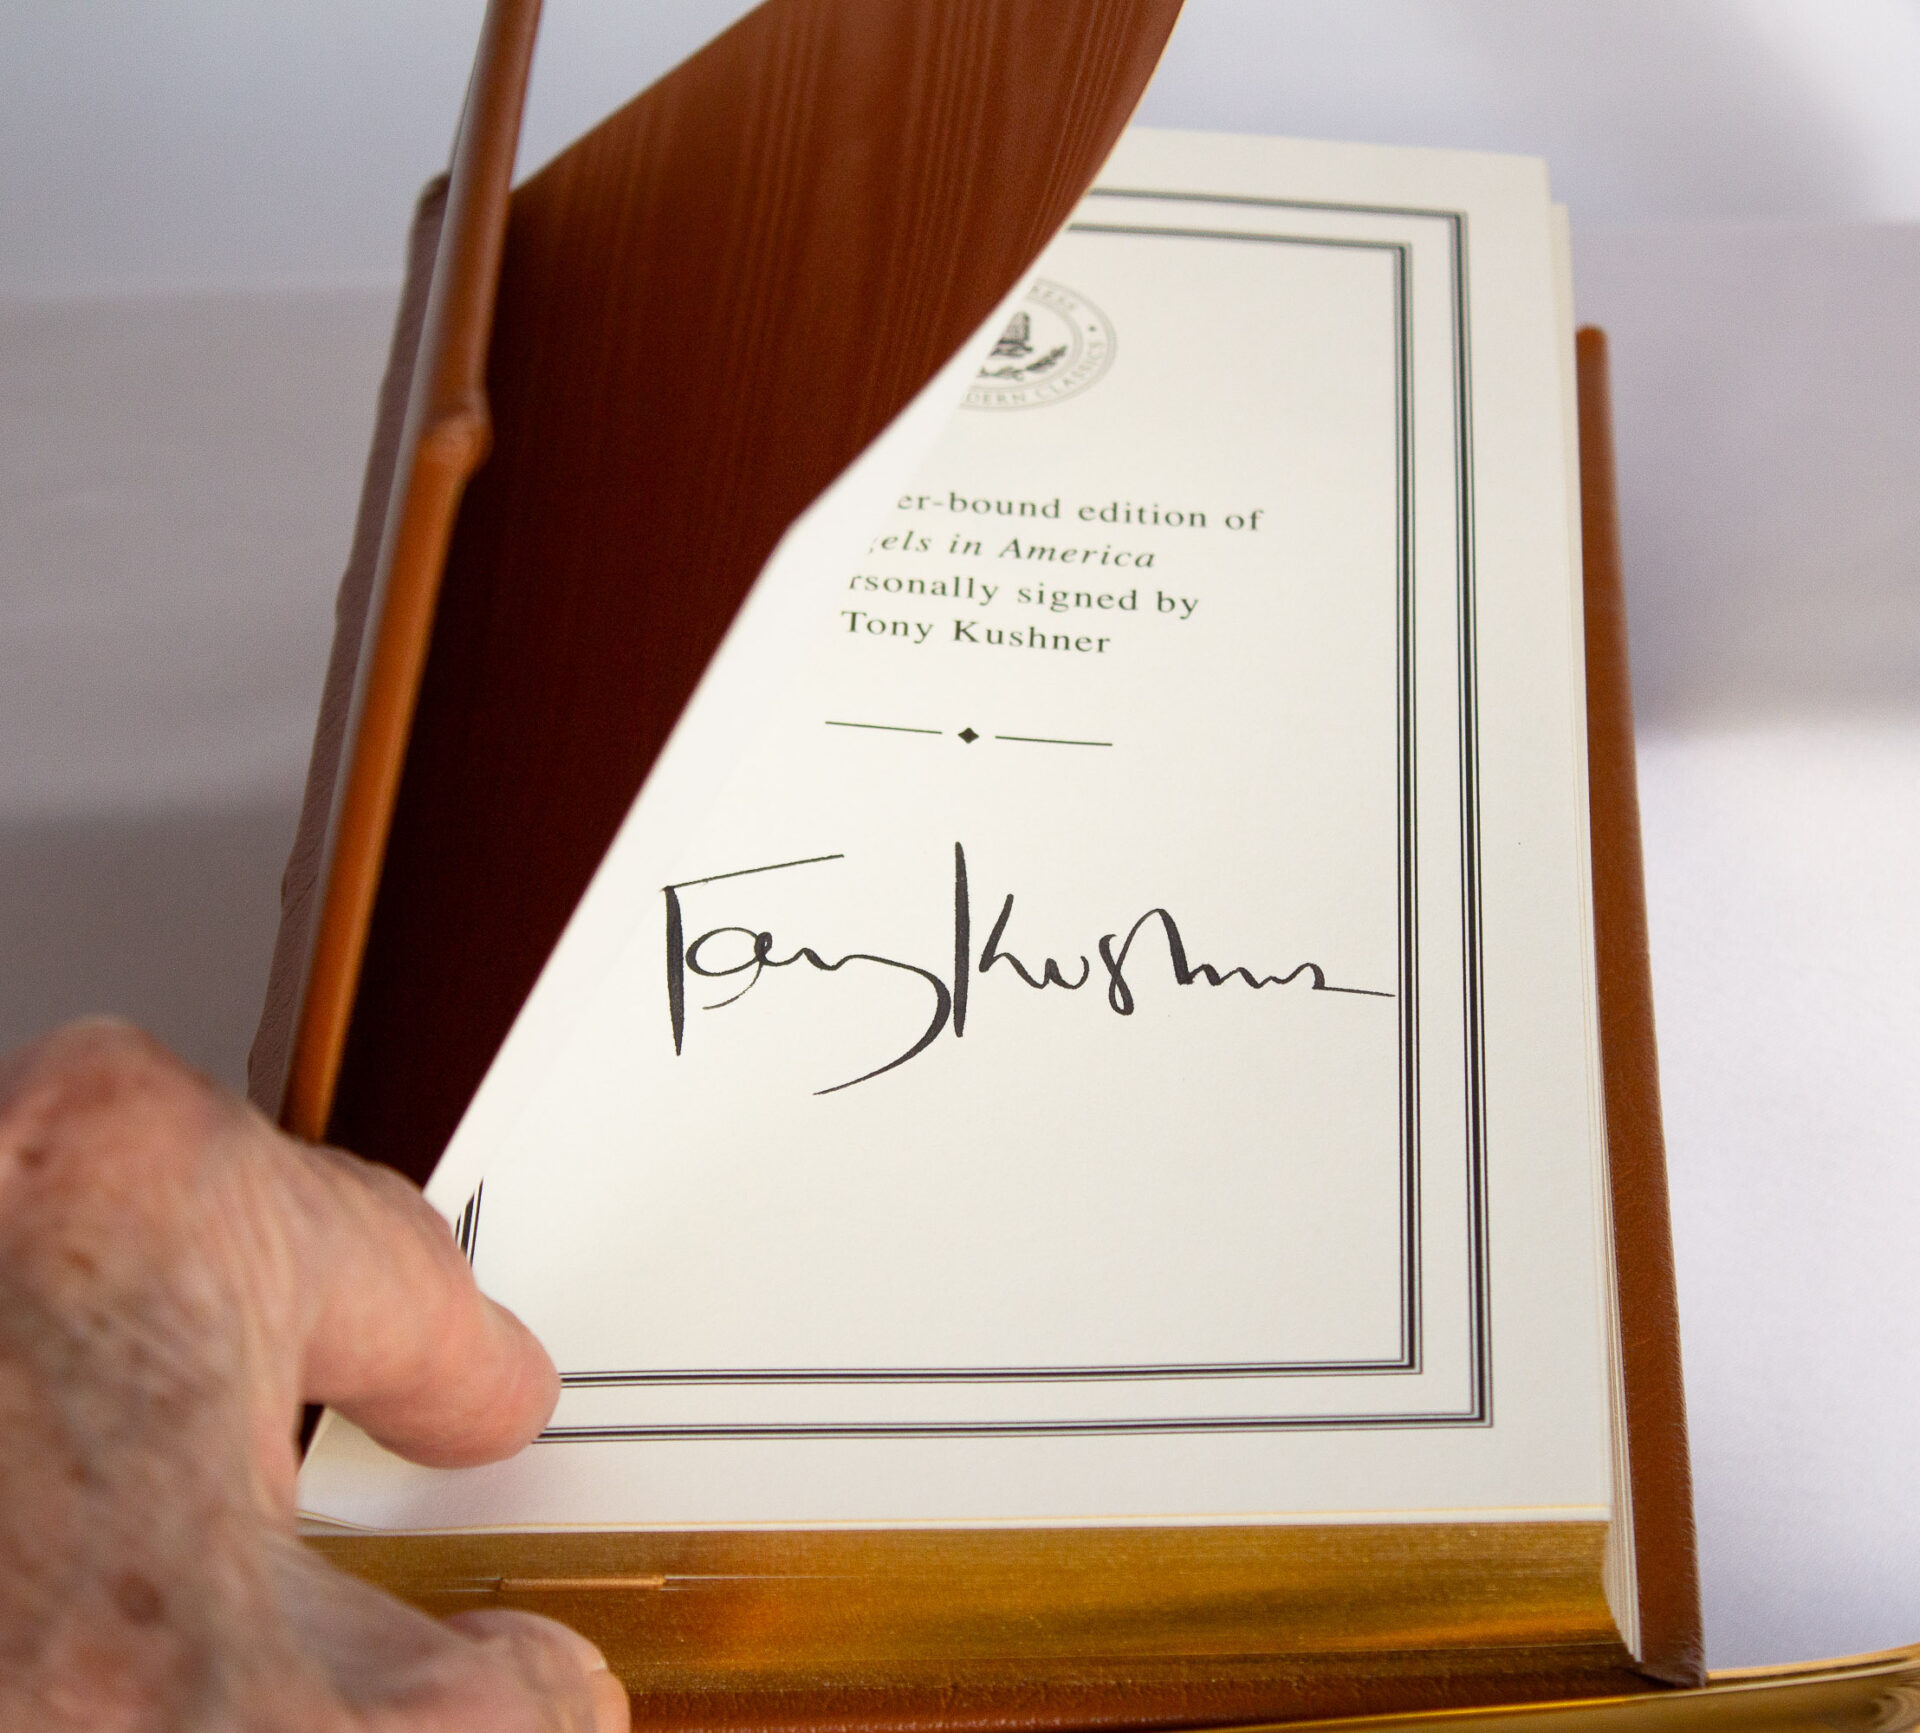 CLASSICS
er-bound edition of
els in America
rsonally signed by
Tony Kushner
Tony Kushner